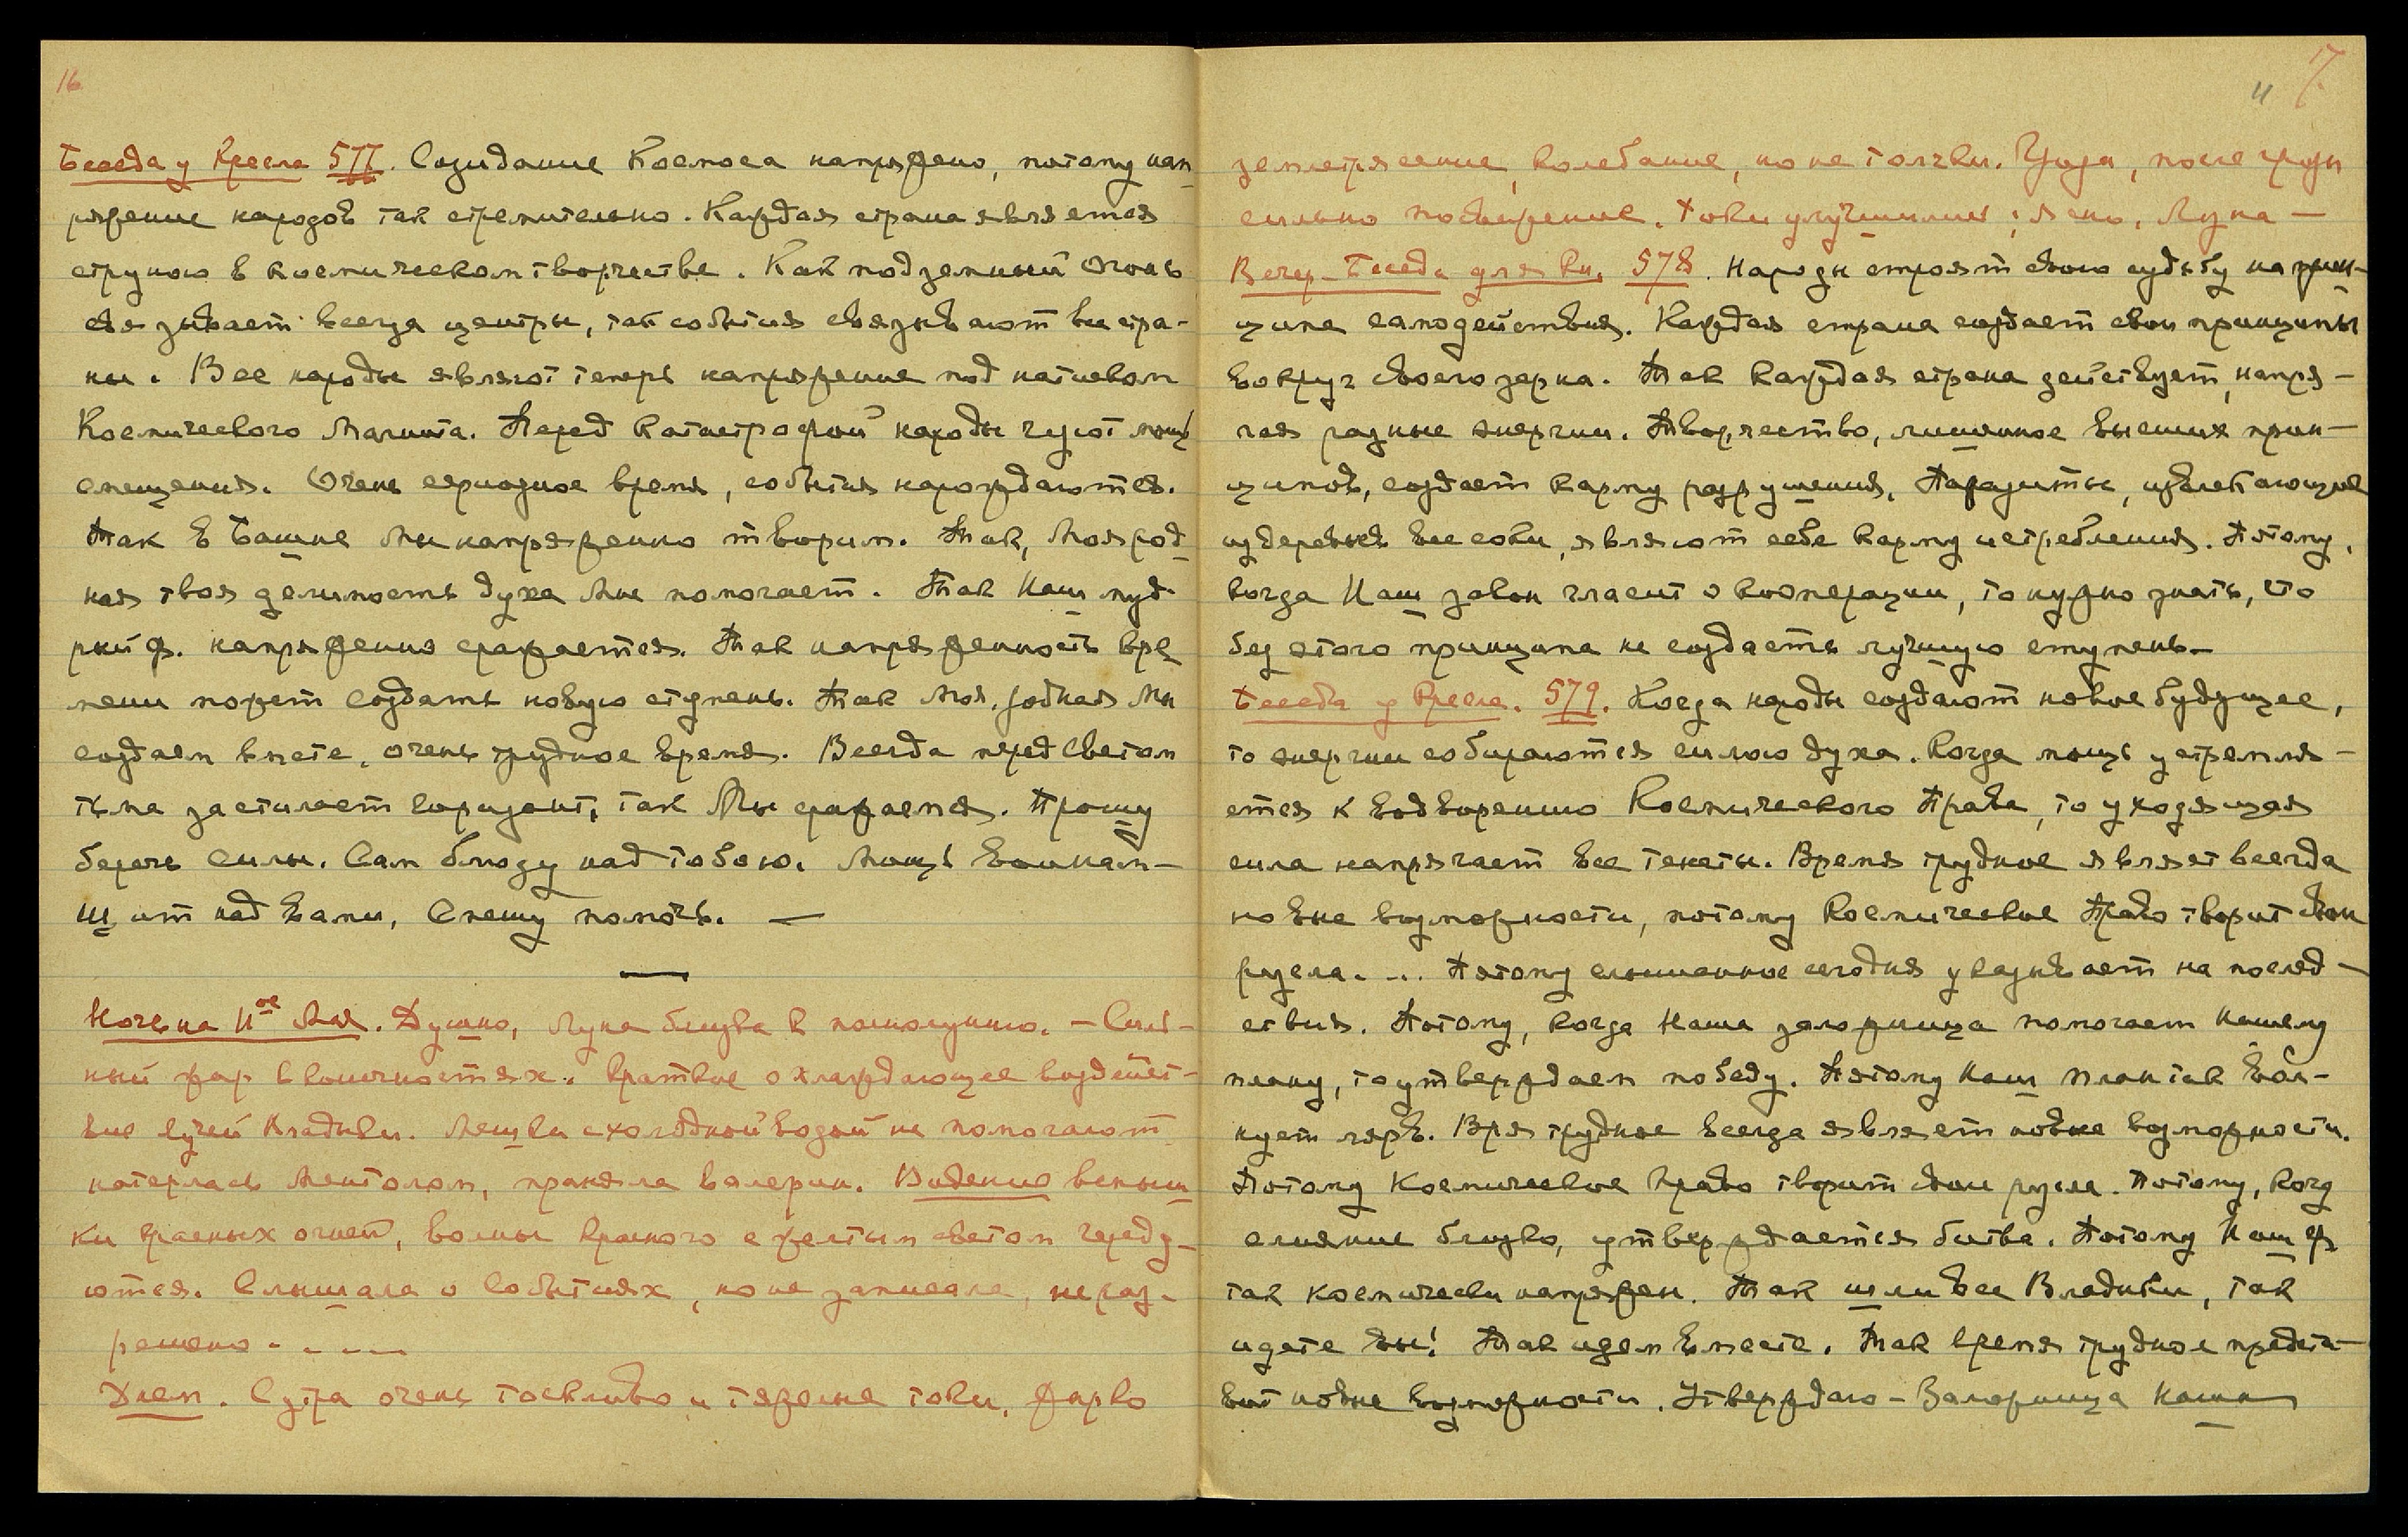 16
Беседа у Кресла 577. Созидание Космоса напряжено, потому нап
ряжение народов так стремительно. Каждая страна является
струною в космическом творчестве. Как подземный Огонь
связывает всегда центры, так события связывают все стра-
ны. Все народы являют теперь напряжение под натиском
Космического Магнита. Перед Катастрофой народы чуют мощь
смещения. Очень серьозное время, события нарождаются.
Так в Башне Мы напряженно творим. Так, Моя род-
ная твоя делимость духа Мне помогает. Так Наш муд-
рый Ф. напряженно сражается. Так напряженность вре
мени может создать новую ступень. Так Моя, родная Мы
создаем вместе, очень трудное время. Всегда перед Светом
тьма застилает горизонт, так Мы сражаемся. Прошу
беречь силы. Сам блюду над тобою. Мощь Воинам —
Щит над вами, Спешу помочь. —
Ночь на 11ое Мая. Душно, Луна близка к полнолунию. — Силь-
ный жар в конечностях. Краткое охлаждающее воздейст-
вие лучей Владыки. Мешки с холодной водой не помогают
натерлась Ментолом, приняла валериан. Видение вспыш
ки красных огней, волны красного с желтым светом череду-
ются. Слышала о Событиях, но не записала, не раз-
решено - - - - -
Днем. С утра очень тоскливо и тяжелые токи, жарко
17
11
землетрясение, колебание, но не толчки. Гроза, после грозы
сильно посвежение. Токи улучшились, ясно, Луна —
Вечер — Беседа для Кн. 578. Народы строят свою судьбу на прин-
ципе самодействия. Каждая страна создает свои принципы
вокруг своего зерна. Так каждая страна действует, напря-
гая разные энергии. Творчество, лишенное высших прин-
ципов, создает карму разрушения. Паразиты, извлекающие
из деревьев все соки, являют себе карму истребления. Потому,
когда Наш закон гласит о кооперации, то нужно знать, что
без этого принципа не создасть лучшую ступень —
Беседа у Кресла. 579. Когда народы создают новое будущее,
то энергии собираются силою духа. Когда мощь устремля-
ется к водворению Космического Права, то уходящая
сила напрягает все тенеты. Время трудное являет всегда
новые возможности, потому Космическое Право творит свои
русла. ... Потому слышанное сегодня указывает на послед-
ствия. Потому, когда Наша заложница помогает Нашему
плану, то утверждаем победу. Потому Наш План так вол-
нует мир. Время трудное всегда являет новые возможности.
Потому Космическое Право творит свои русла. Потому, когд
слияние близко, утверждается битва. Потому Наш Ф
так космически напряжен. Так шли все Владыки, так
идете вы! Так идем вместе. Так время трудное предста-
вит новые возможности. Утверждаю — Заложница Наша